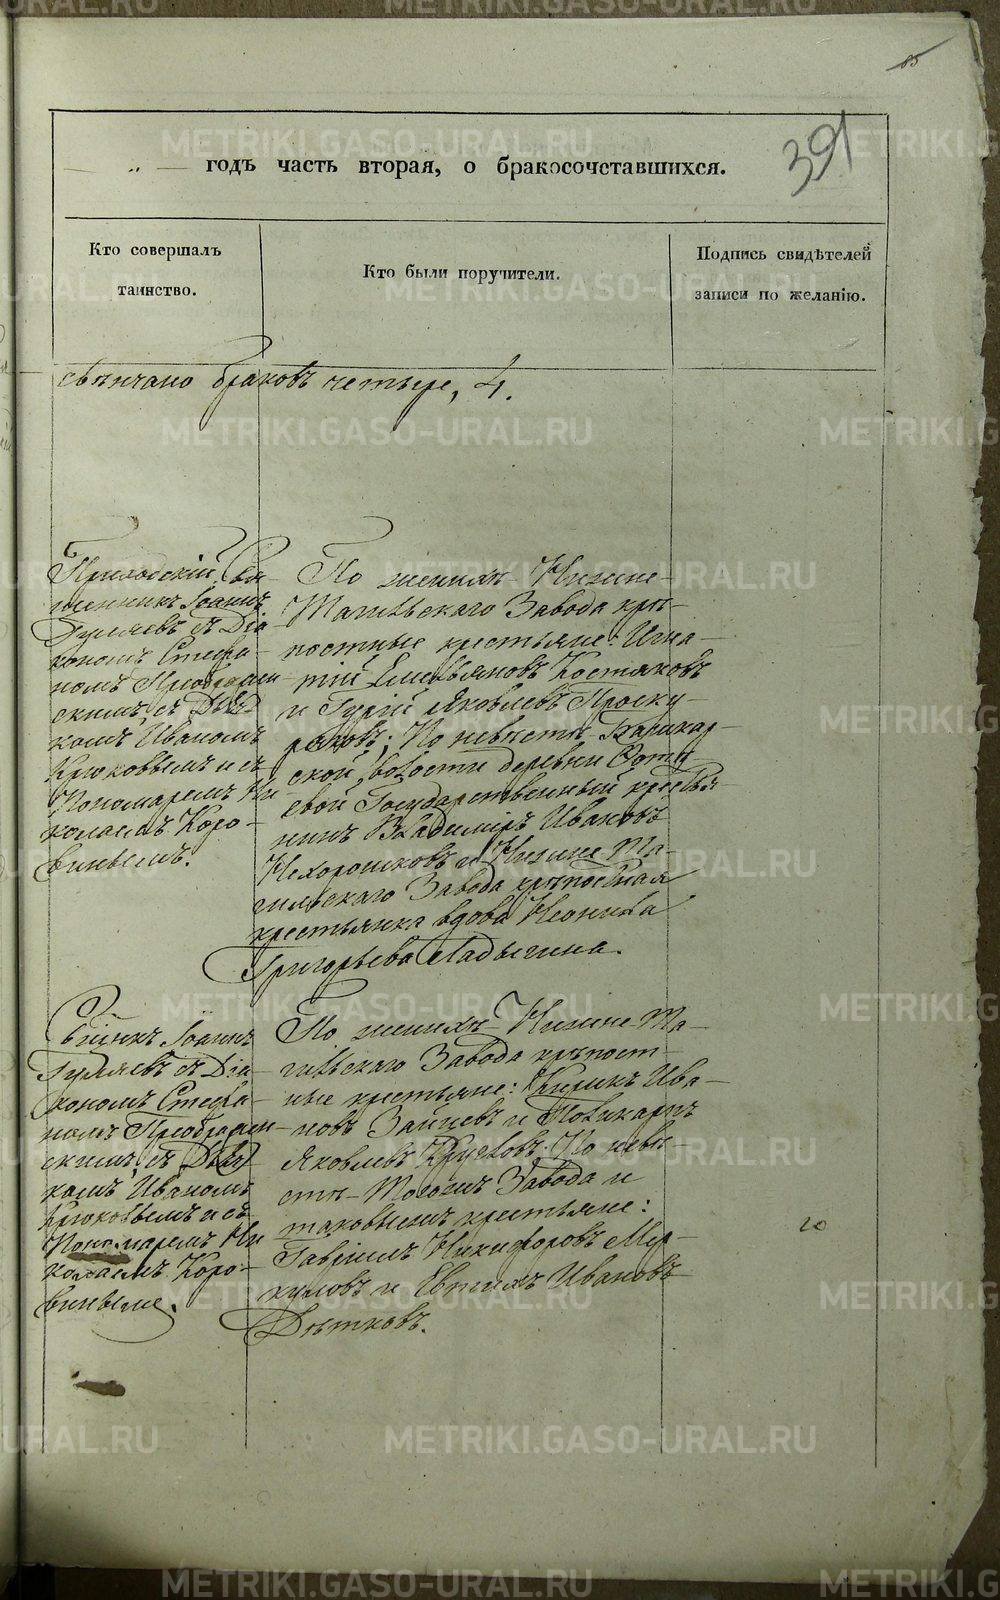 85
391
годъ часть вторая, о бракосочетавшихся.
Кто совершалъ
таинство.
Кто были поручители.
Подпись свидѣтелей
записи по желанію.
свѣнчано браковъ четыре, 4.
Приходскій Свя-
щенникъ Іоаннъ
Гуляевъ съ Діа-
кономъ Стефа-
номъ Преображен-
скимъ, съ Дьяч-
комъ Иваномъ
Крюковымъ и съ
Пономаремъ Ни-
колаемъ Коро-
винымъ.
По женихѣ Нижне-
Тагильскаго Завода крѣ-
постные крестьяне: Игна-
тій Емельяновъ Костяковъ
и Гурій Яковлевъ Проску-
ряковъ; По невѣстѣ
ской волости деревни
Государственный крестья-
нинъ Владиміръ Ивановъ
Нехорошковъ и Нижне Та-
гильскаго Завода крѣпостная
крестьянка вдова Неонила
Григорьева Ладыгина.
Свщнкъ Іоаннъ
Гуляевъ съ Діа-
кономъ Стефа-
номъ Преображен-
скимъ, съ Дьяч-
комъ Иваномъ
Крюковымъ и съ
Пономаремъ Ни-
колаемъ Коро-
винымъ.
По женихѣ Нижне Та-
гильскаго Завода крѣпост-
ные крестьяне: Кирикъ Ива-
новъ Зайцевъ и Поликарпъ
Яковлевъ По невѣ-
стѣ Тогожъ Завода и
таковыежъ крестьяне:
Гавріилъ Никифоровъ Мер-
куловъ и Евтихъ Ивановъ
Дѣтковъ.
20
METRIKI.GASO-URAL.RU